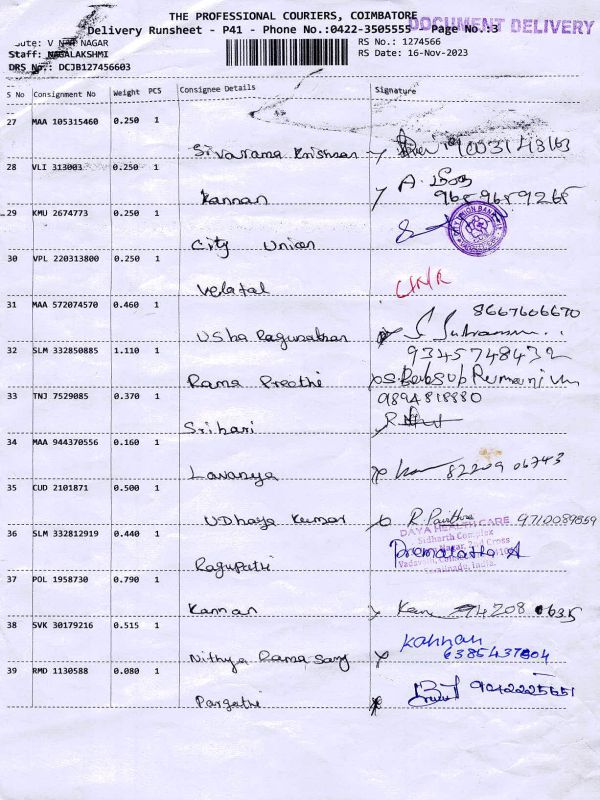 THE PROFESSIONAL COURIERS, COIMBATORE
DOCUMENT DELIVERY
Delivery Runsheet - P41 - Phone No.:0422-3505555 Page No.:3
NAGAR
RS No.: 1274566
Staff: NAGALAKSHMI
RS Date: 16-Nov-2023
DRS No.: DCJB127456603
S No Consignment No Weight PCS Consignee Details Signature
27 MAA 105315460 0.250 1
Sivarama Krishnan
28 VLI 313003 0.250 1
Kannan 9659659265
29 KMU 2674773 0.250 1
City Union CITY UNION BANK
30 VPL 220313800 0.250 1
31 MAA 572074570 0.460 1
8667606670
Usha
32 SLM 332850885 1.110 1
9345748432
Rama Preethi
33 TNJ 7529085 0.370 1
9894818880
Srihari
34 MAA 944370556 0.160 1
Lavanya 82209 06743
35 CUD 2101871 0.500 1
UDhaya Kumar R. 9710089559
36 SLM 332812919 0.440 1
DAYA HEALTH CARE
Sidharth Complex
Nagar 2nd Cross
Premalatha A
India.
Ragupathi
37 POL 1958730 0.790 1
Kannan
38 SVK 30179216 0.515 1
Kannan
6385437804
Nithya Rama Samy
39 RMD 1130588 0.080 1
9042225651